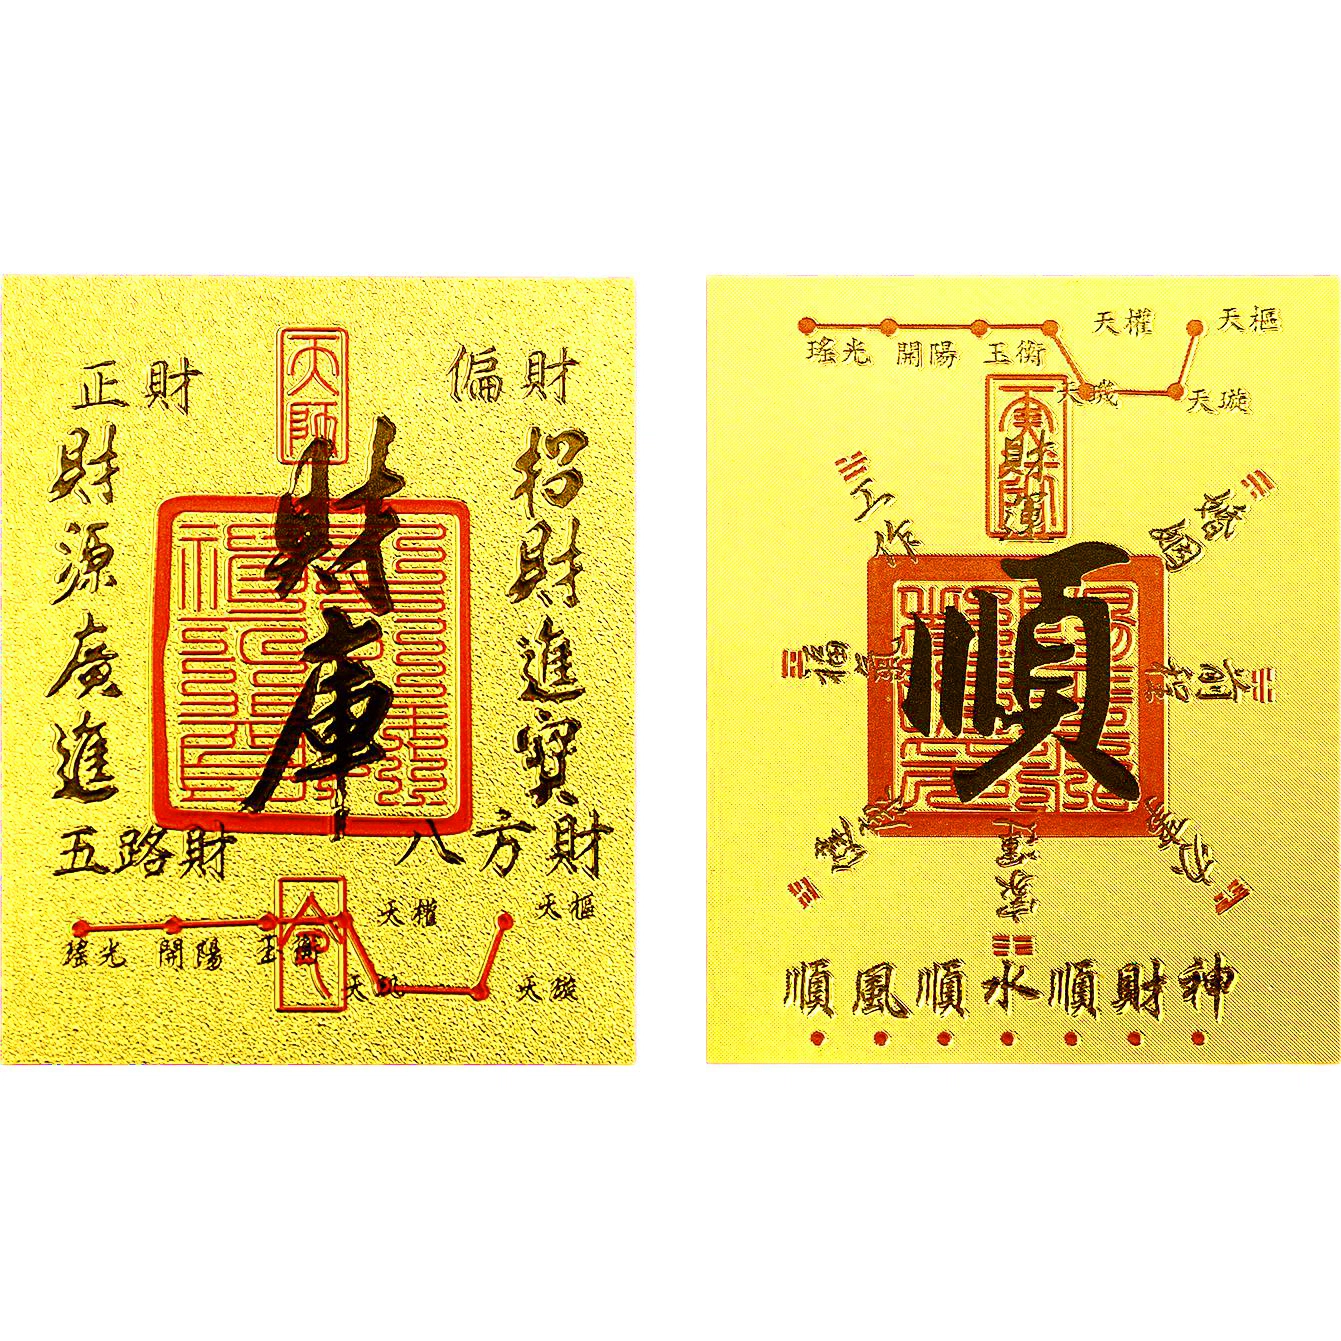 天師
正財
偏財
財庫
招財進寶
財源廣進
五路財
八方財
天樞
天璇
天璣
天權
玉衡
開陽
瑤光
令
天樞
天璇
天璣
天權
玉衡
開陽
瑤光
財運
順
工作
婚姻
福氣
前程
健康
家運
順風順水順財神